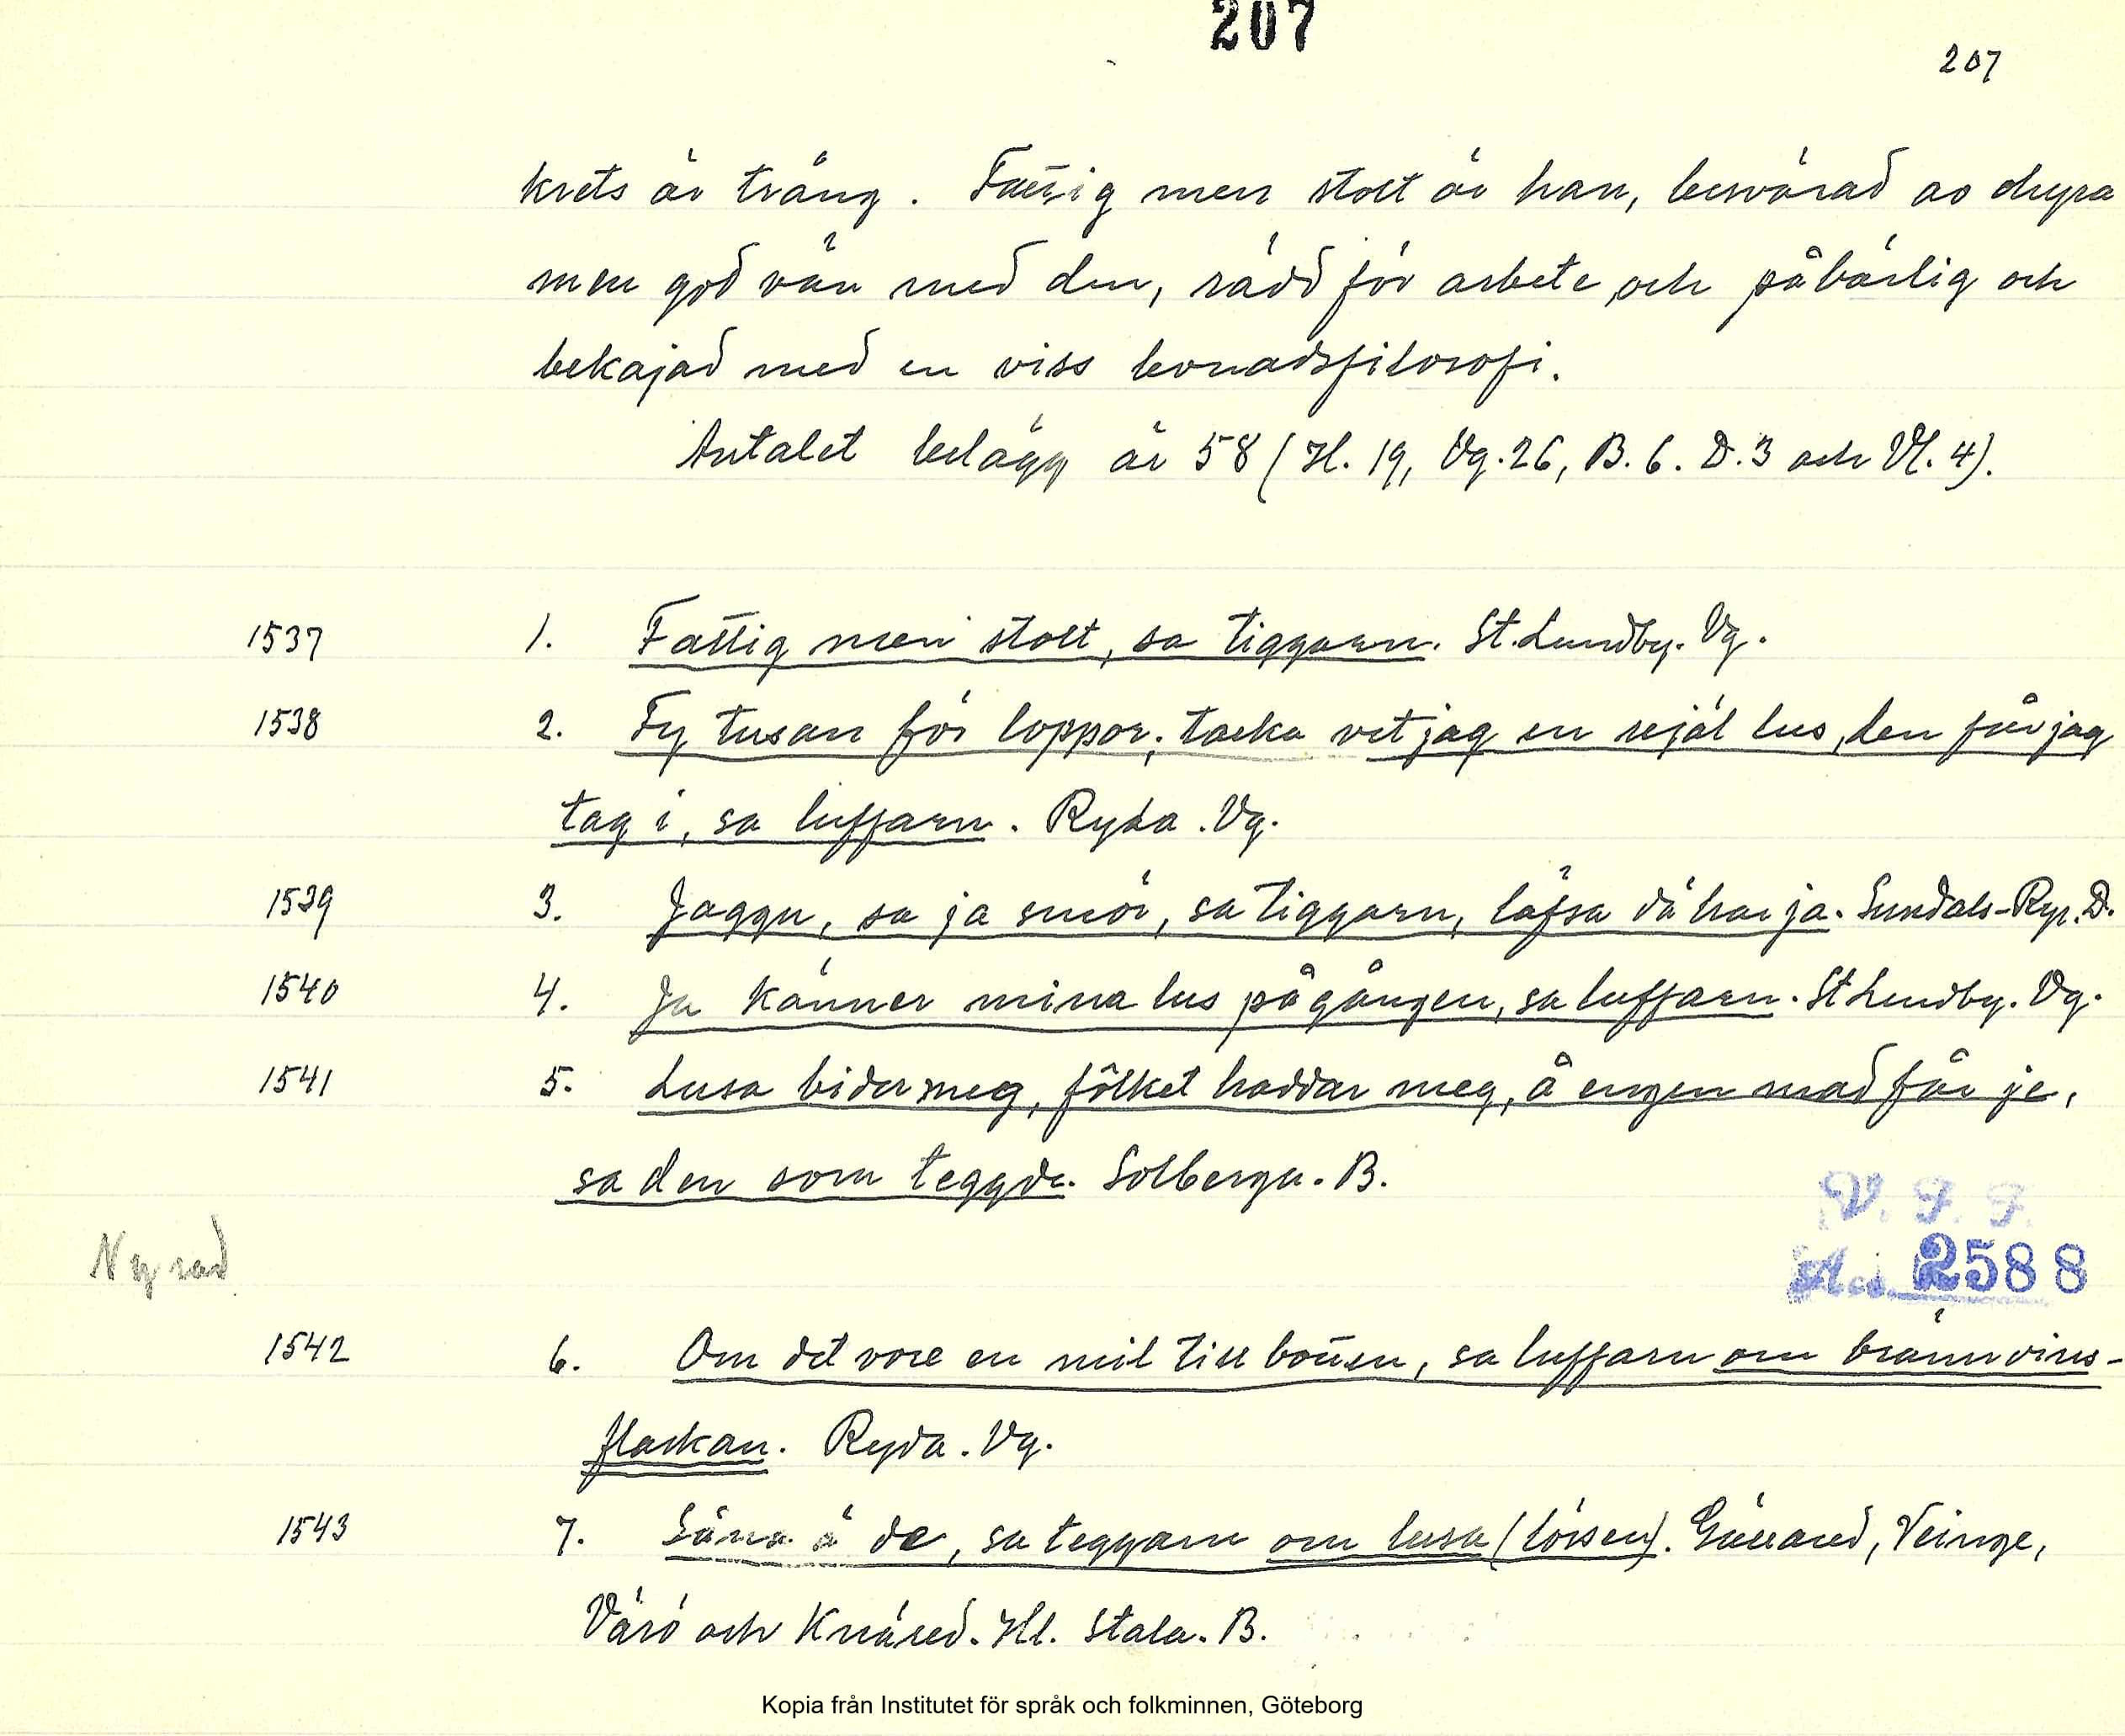 207
207
krets är trång. Fattig men stolt är han, besvärad av ohyra
men god vän med den, rädd för arbete och påbärlig och
bekajad med en viss levnadsfilosofi.
Antalet belägg är 58 (Hl. 19, Vg. 26, B. 6. D. 3 och Vl. 4).
1537 1. Fattig men stolt, sa tiggarn. St. Lundby. Vg.
1538 2. Fy tusan för loppor; tacka vet jag en rejäl lus, den får jag
tag i, sa luffarn. Ryda. Vg.
1539 3. Jaggu, sa ja smör, sa tiggarn, läfsa då har ja. Sundals-Ryr. D.
1540 4. Ja känner mina lus på gången, sa luffarn. St Lundby. Vg.
1541 5. Lusa bider meg, fôlket haddar meg, å engen mad får je,
sa den som teggde. Solberga. B.
Ny rad
V. F. F.
Acc. 2588
1542 6. Om det vore en mil till botten, sa luffarn om brännvins-
flaskan. Ryda. Vg.
1543 7. Såna ä de, sa teggarn om lusa (lörsen). Gällared, Veinge,
Värö och Knäred. Hl. Stala. B.
Kopia från Institutet för språk och folkminnen, Göteborg